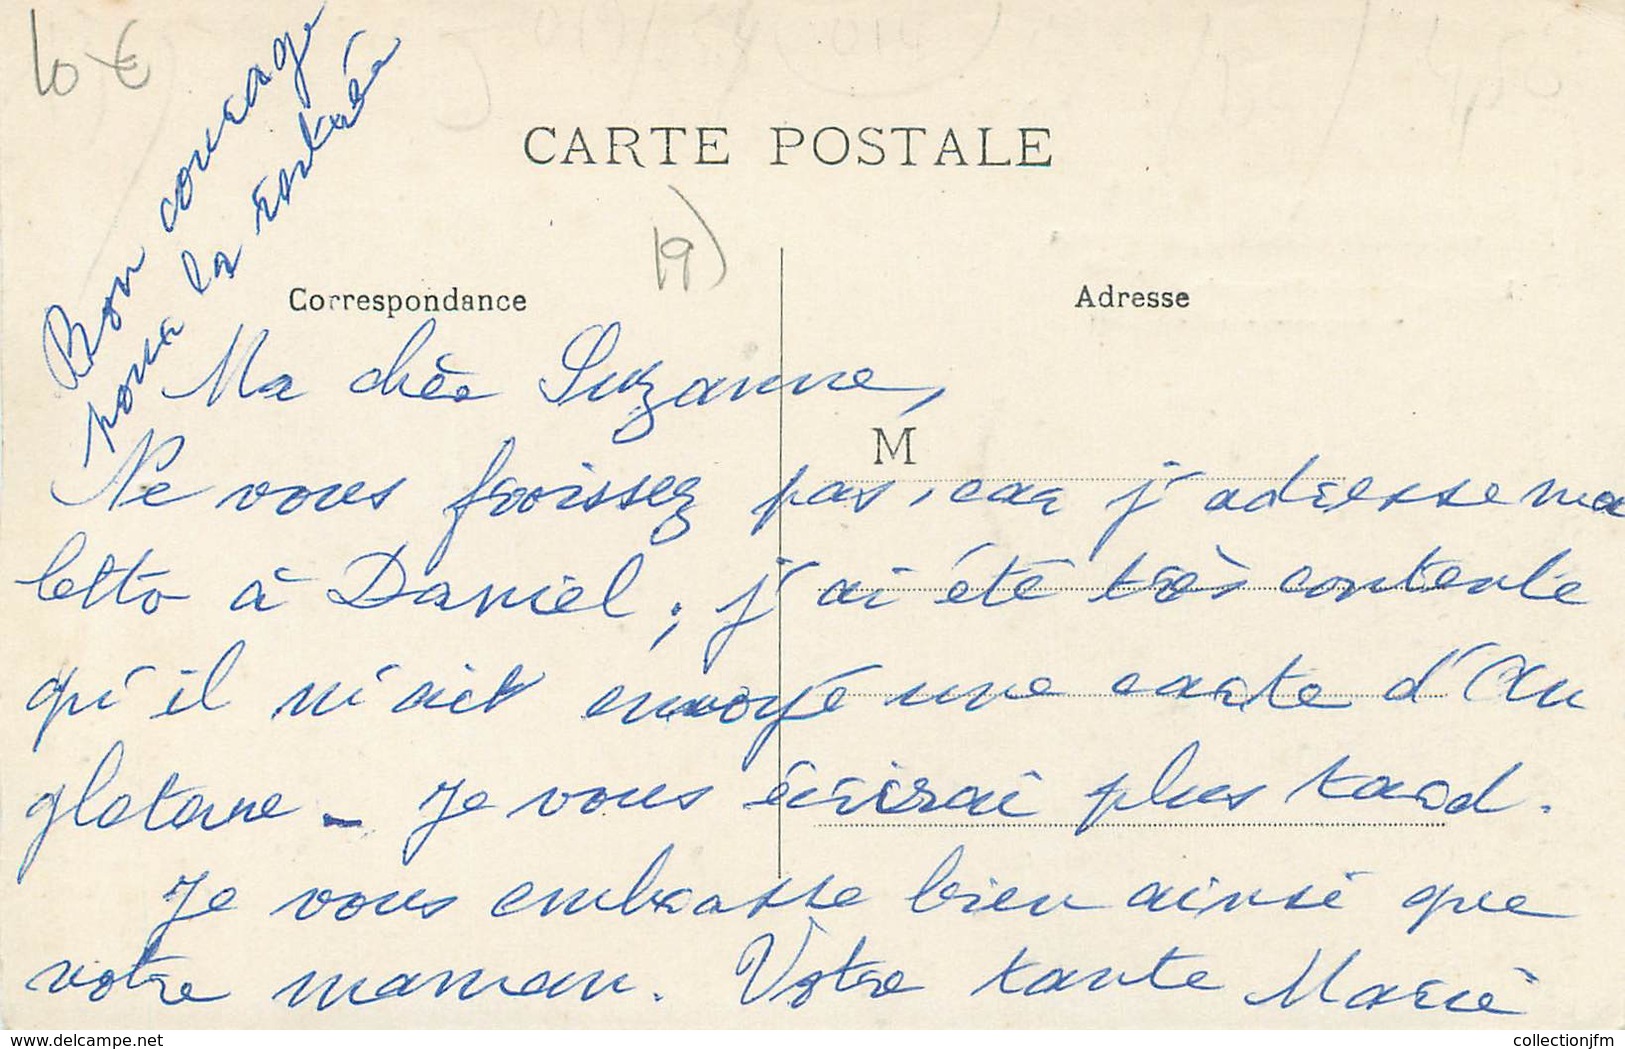 10 €
Bon courage
pour la rentrée
CARTE POSTALE
19)
Correspondance
Adresse
Ma chère Suzanne,
M
Ne vous froissez pas, car j'adresse ma
lettre à Daniel ; j'ai été très contente
qu'il m'ait envoyé une carte d'An
gleterre – Je vous écrirai plus tard.
Je vous embrasse bien ainsi que
votre maman. Votre tante Marie
www.delcampe.net
collectionjfm